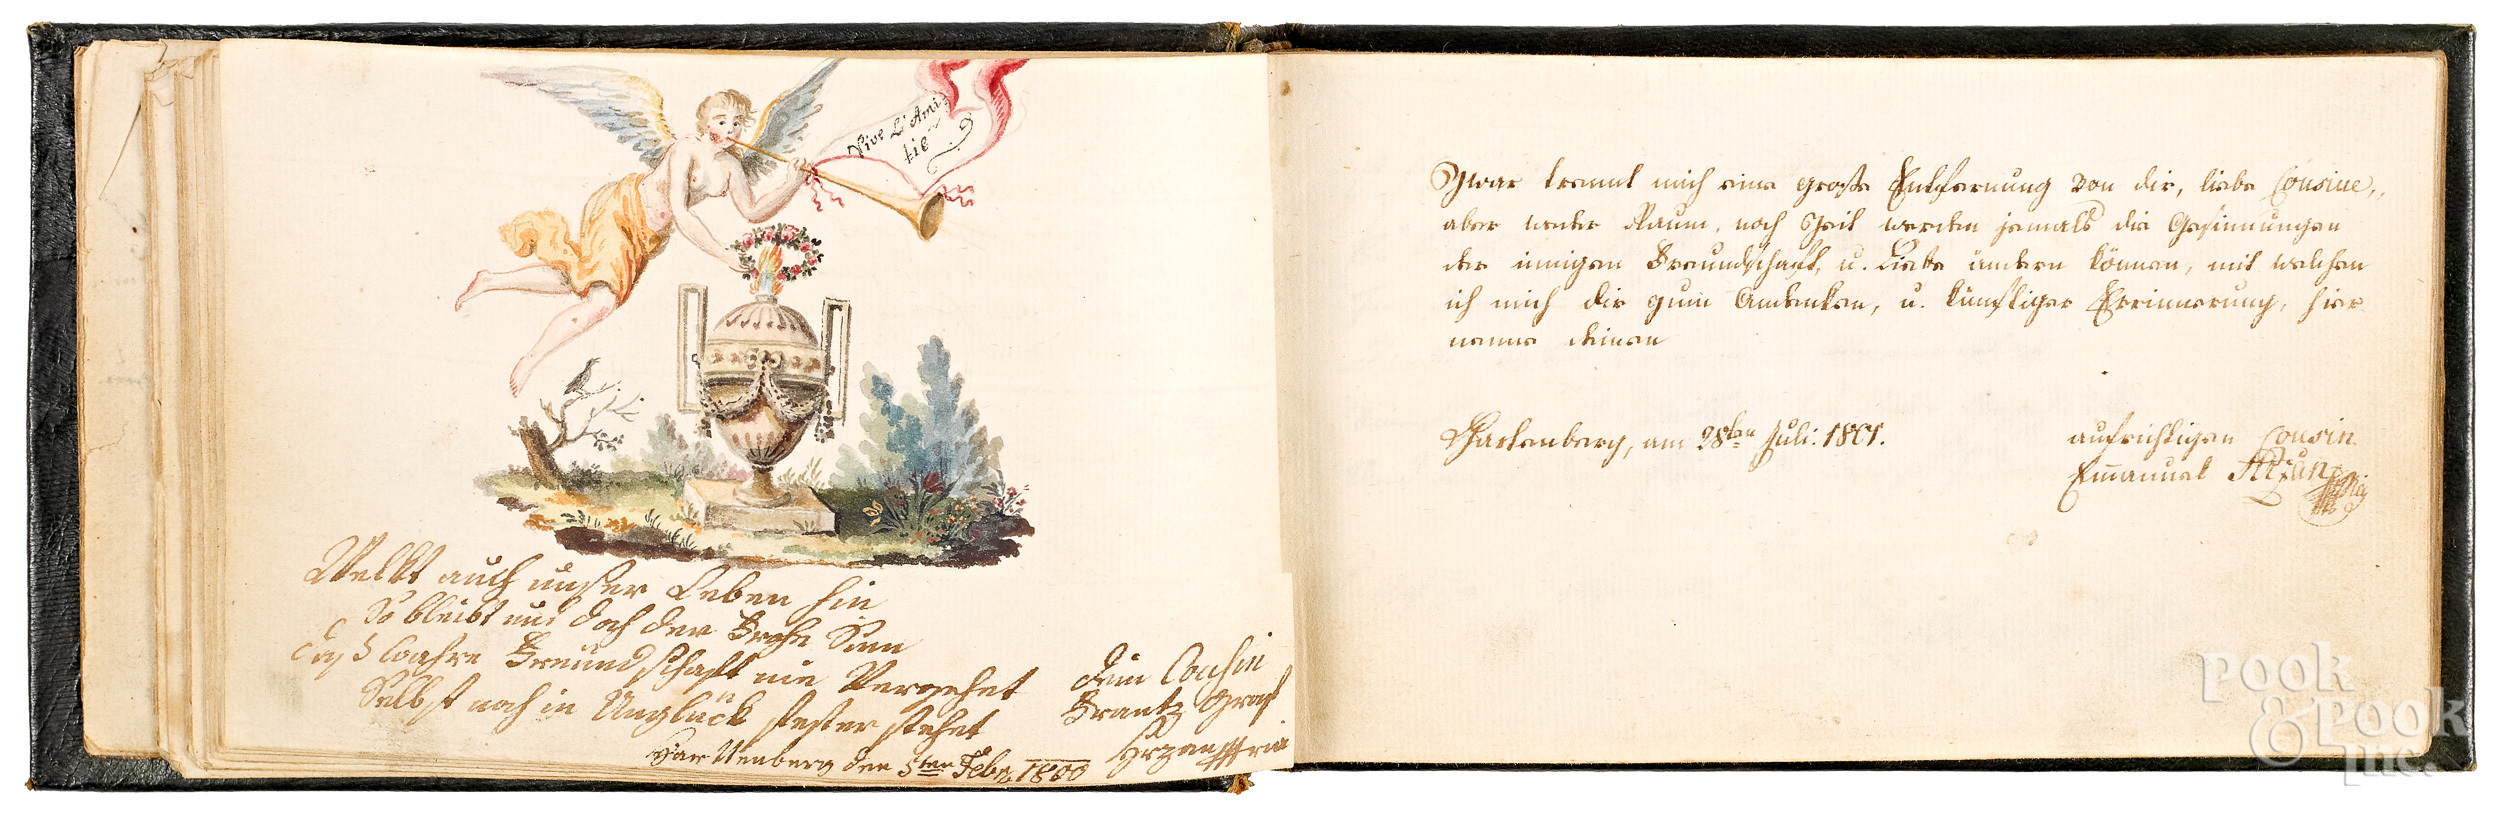 Vive L'Ami-
tié
Welkt auch unser Leben hin
So bleibt uns doch der Frohe Sinn
daß Wahre Freundschaft nie Vergehet
Selbst noch in Unglück fester stehet
dein Cousin
Frantz Graf
Harttenberg den 5ten Feb. 1800
Zwar trennt mich eine große Entfernung von dir, liebe Cousine,
aber weder Raum, noch Zeit werden jemals die Gesinnungen
der innigen Freundschaft, u. Liebe ändern können, mit welchen
ich mich dir zum Andenken, u. künftiger Errinnerung, hier
nenne deinen
am 28ten Juli. 1801.
aufrichtigen Cousin
Emanuel
Pook
& Pook
Inc.